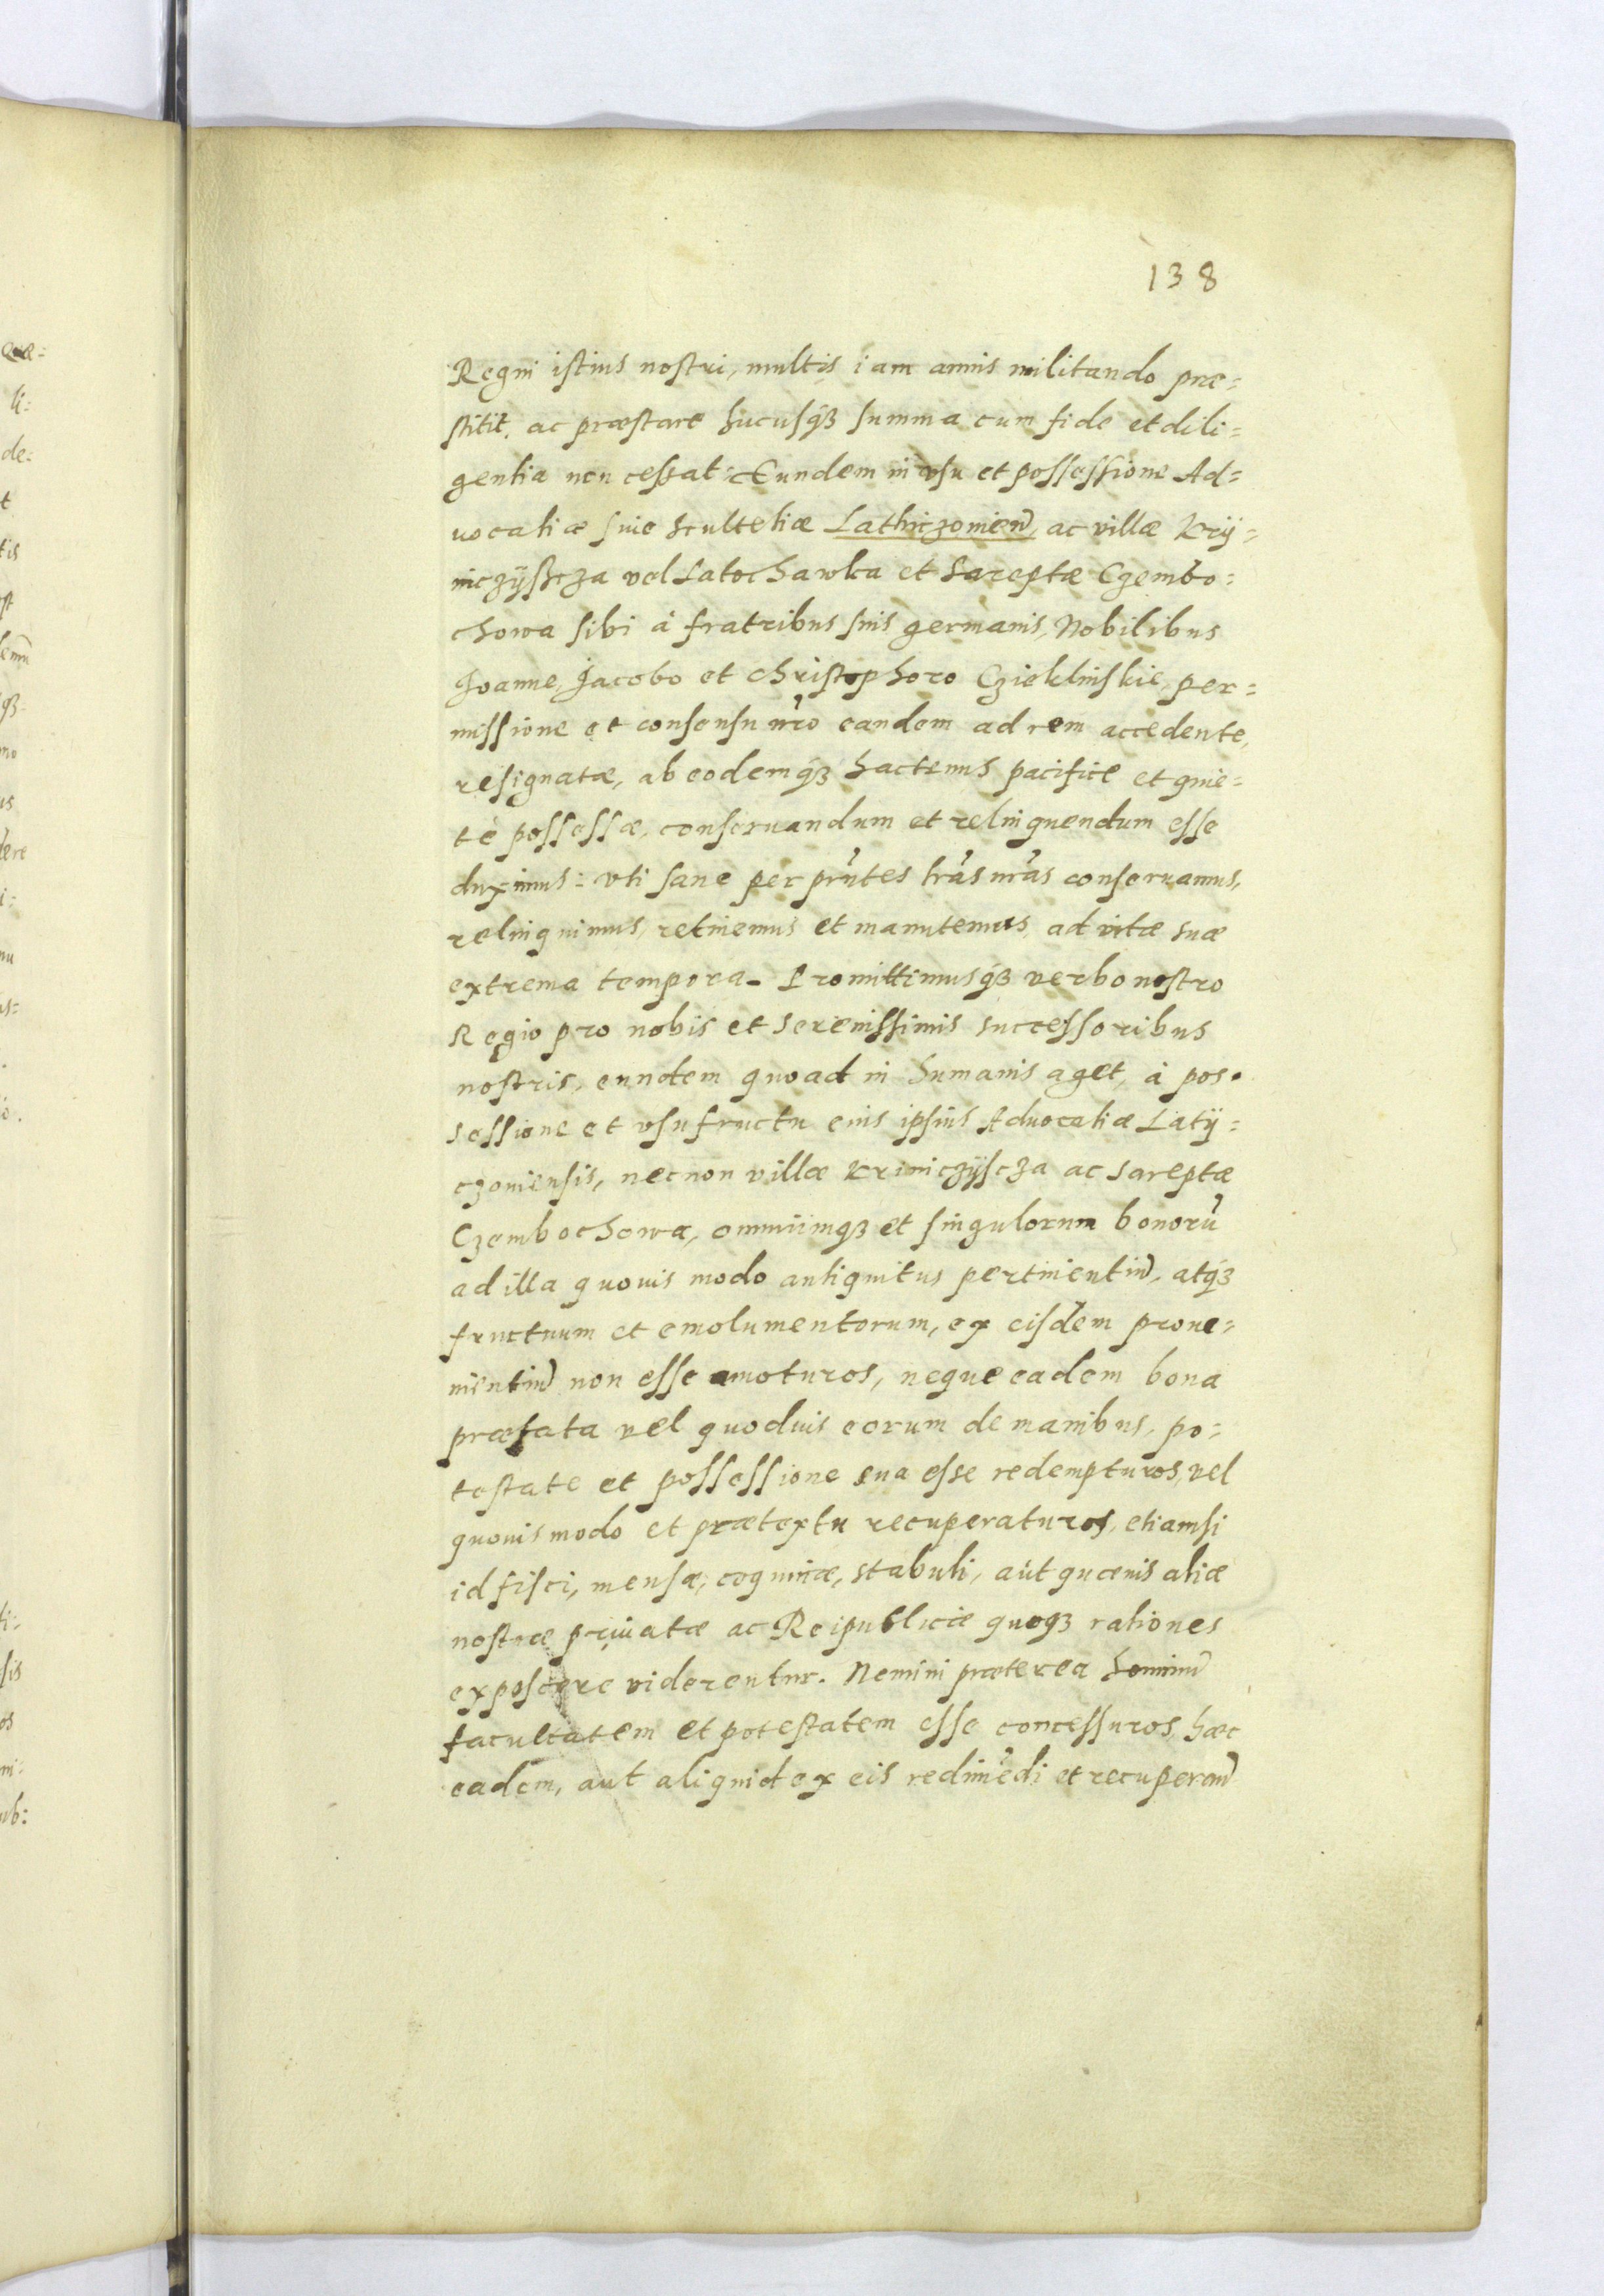 138
Regni istius nostri, multis iam annis militando præ=
stitit, ac præstare hucusq́ꝫ summa cum fide et dili=
gentia non cessat: Eundem in vsu et possessione Ad=
uocatiæ siue scultetiæ Lathiczomien̄, ac villæ Krÿ=
niczÿszcza vel Latochawka et Sareptæ Czembo=
chowa sibi à fratribus suis germanis, Nobilibus
Joanne, Jacobo et Christophoro Czieklinskie, per=
missione et consensu nr̃o eandem ad rem accedente,
resignatæ, ab eodemq́ꝫ hactenus pacifice et quie=
tè possessæ, conseruandum et relinquendum esse
duximus: vti sane per pn̄tes lr̃as nr̃as conseruamus,
relinquimus, retinemus et manutemus, ad vitæ suæ
extrema tempora. Promittimusq́ꝫ verbo nostro
Regio pro nobis et Serenissimis successoribus
nostris, eundem quoad in humanis aget, à pos=
sessione et vsufructu eius ipsius Aduocatiæ Latÿ=
czoniensis, necnon villæ Kriniczÿscza ac Sareptæ
Czembochowa, omniūmqꝫ et singulorum bonorū
ad illa quouis modo antiquitus pertinentiū, atq́ꝫ
fructuum et emolumentorum, ex eisdem proue=
nientiū non esse amoturos, neque eadem bona
præfata vel quoduis eorum de manibus, po=
testate et possessione sua esse redempturos, vel
quouis modo et prætextu recuperaturos, etiamsi
id fisci, mensæ, coquinæ, stabuli, aut qucenis aliæ
nostræ priuatæ ac Reipublicæ quoqꝫ rationes
exposcere viderentur. Nemini præterea hominū
facultatem et potestatem esse concessuros, hæc
eadem, aut aliquid ex eis redimēdi et recuperan̄